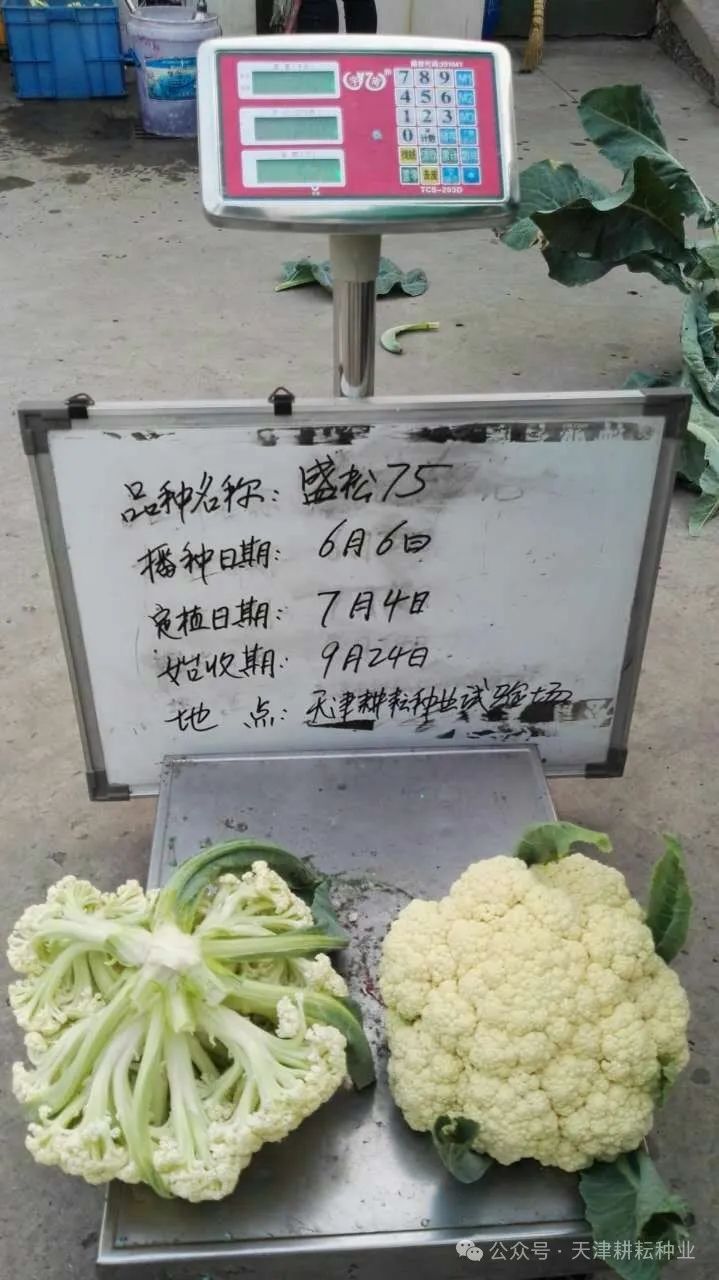 7 8 9
4 5 6
1 2 3
0
TCS-203D
品种名称: 盛松75
播种日期: 6月6日
定植日期: 7月4日
始收期: 9月24日
地 点: 天津耕耘种业试验场
公众号 · 天津耕耘种业